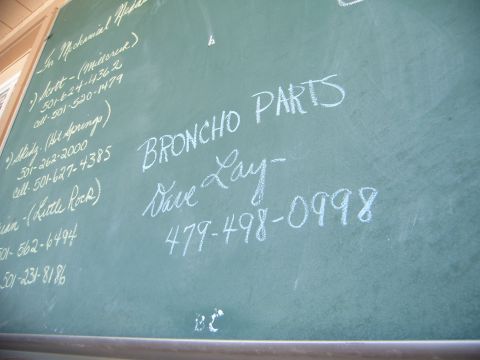 In Mechanical
Scott - (Millcreek)
501-624-4362
cell-501-520-1479
(Hot Springs)
501-262-2000
cell 501-627-4385
(Little Rock)
501-562-6494
501-231-8186
BRONCHO PARTS
Dave Lay-
479-498-0998